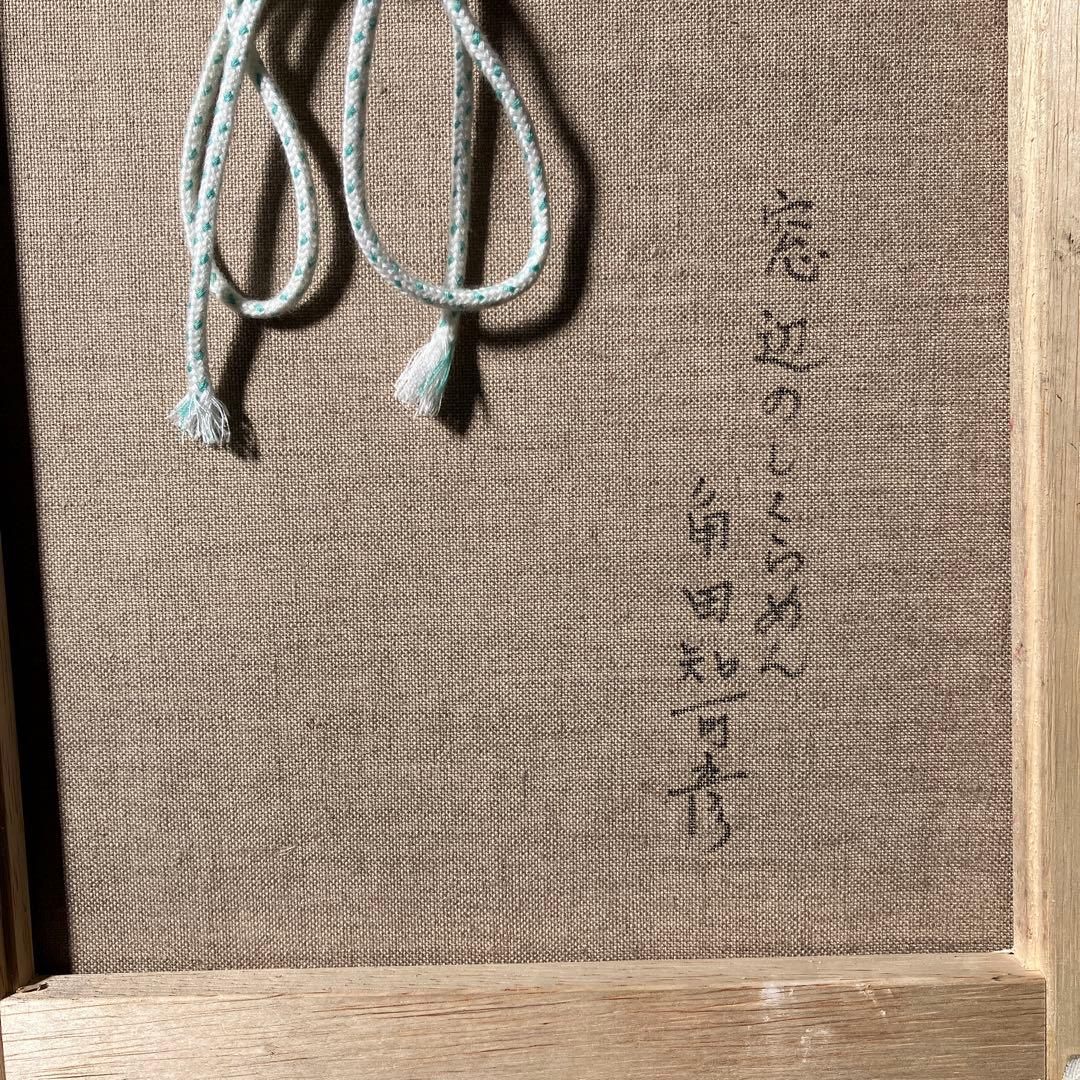 窓辺のしくらめん
角田知可彦